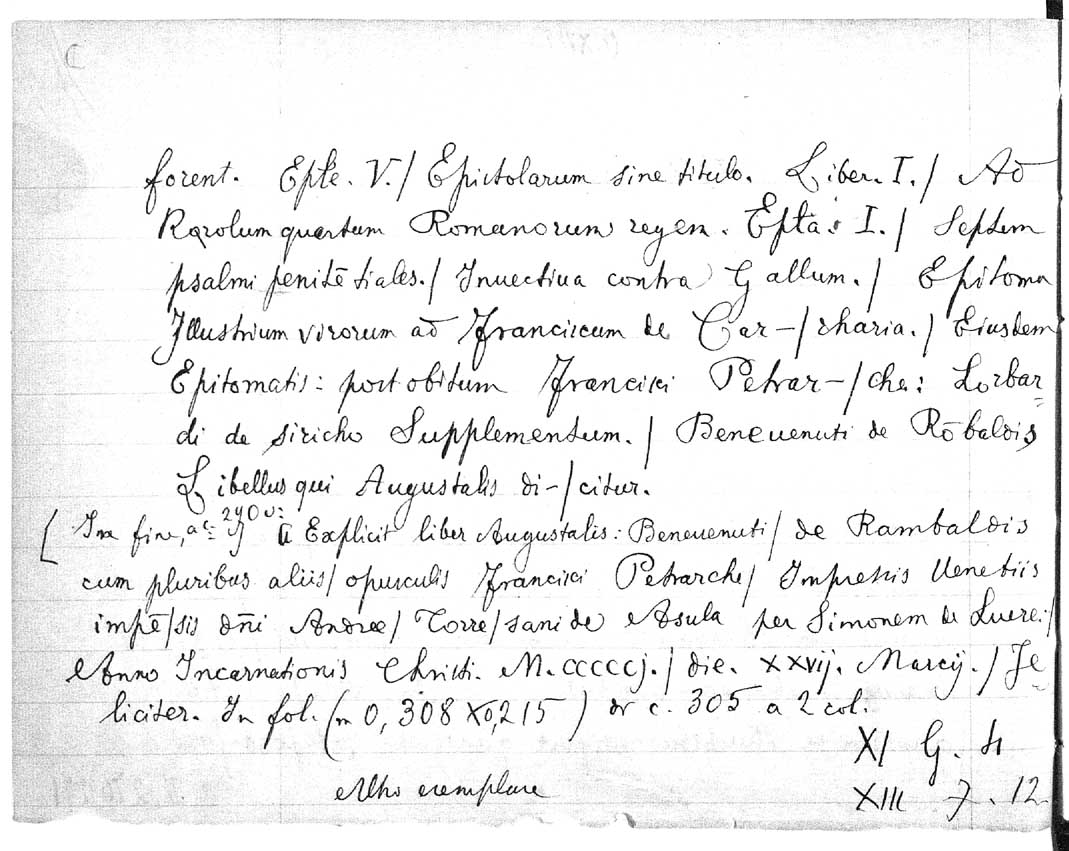 C
forent. Eptē. V./ Epistolarum sine titulo. Liber. I./ Ad
Karolum quartum Romanorum regem. Epta: I./ Septem
psalmi penitētiales./ Inuectiua contra Gallum./ Epitoma
Illustrium virorum ad Franciscum de Car-/rharia./ Eiusdem
Epitomatis: post obitum Francisci Petrar-/che: Lorbar
di de siricho Supplementum./ Beneuenuti de Rōbaldis
Libellus qui Augustalis di-/citur.
[In fine, a c. Explicit liber Augustalis: Beneuenuti/ de Rambaldis
cum pluribus aliis/ opusculis Francisci Petrarche/ Impressis Uenetiis
impē/sis dn̄i Andree/ Torre/sani de Asula per Simonem de Luere:/
Anno Incarnationis Christi. M.cccccj./ die. xxvij. Marcij./ Fe
liciter. In fol. (m 0,308 X0,215) di c. 305 a 2 col.
XI G. 4
Altro exemplare XIII 7. 12